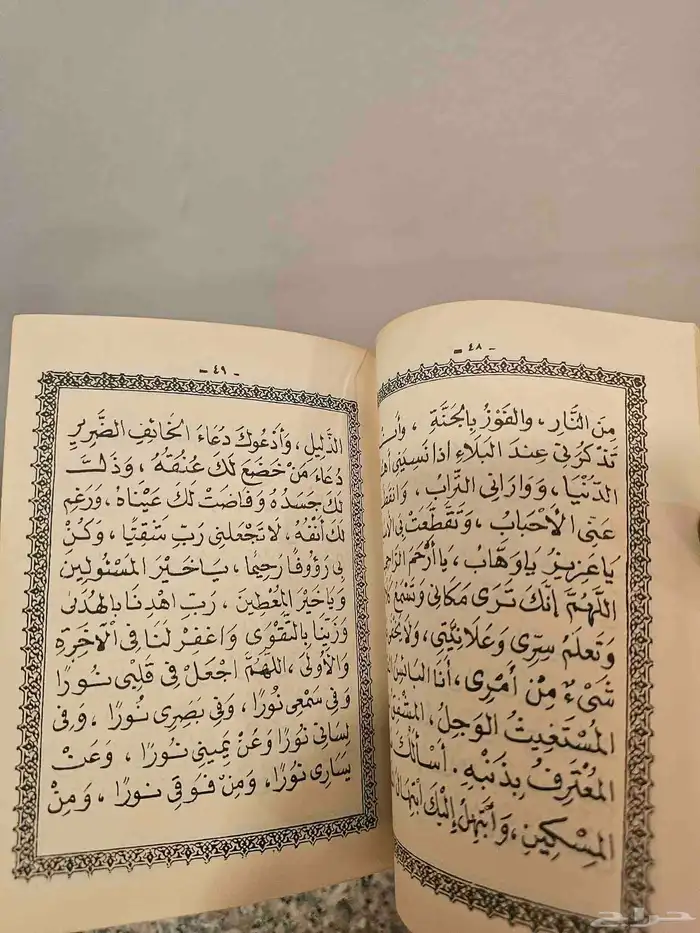 - ٤٨ -
مِنَ النَّارِ ، والفَوْزُ بِالجَنَّةِ ،
تَذْكُرُنِي عِندَ البَلَاءِ اذا نَسِيَنِي
الدّنْيَا ، وَوَارَانِي التُّرابُ ،
عَنِّي الأَحْبَابُ ، وَتَقَطَّعَتْ بِي
يَا عَزِيزُ يَاوَهَّابُ ، يَا أَرْحَمَ
اللَّهُمَّ إِنَّكَ تَرَى مَكَانِي وَتَسْمَعُ
وَتَعلَمُ سِرِّى وَعَلَانِيَّتِي ،
شَىْءٌ مِنْ أَمْرِى ، أَنَا البَائِسُ
المُسْتَغِيثُ الوَجِلُ ،
المُعْتَرِفُ بِذَنبِهِ . أَسْأَلُكَ
المِسْكِينِ ، وَأَبْتَهِلُ إِلَيْكَ
- ٤٩ -
الذَّلِيلِ ، وَأَدْعُوكَ دُعَاءَ الخَائِفِ الضَّرِيرِ
دُعَاءَ مَنْ خَضَعَ لَكَ عُنُقُهُ ، وَذَلَّ
لَكَ جَسَدُهُ وَفَاضَتْ لَكَ عَيْنَاهُ ، وَرَغِمَ
لَكَ أَنْفُهُ . لَا تَجْعَلْنِى رَبِّ شَقِيًّا ، وَكُنْ
بِي رَؤُوفًا رَحِيمًا ، يَاخَيْرَ المَسْئُولِينَ
وَيَاخَيْرَ المُعْطِينَ ، رَبِّ اهْدِنَا بِالهُدَى
وَزَيِّنَّا بِالتَّقْوَى وَاغْفِرْ لَنَا فِى الآخِرَةِ
وَالأُولَى ، اللَّهُمَّ اجْعَلْ فِي قَلْبِى نُورًا
وَفِي سَمْعِى نُورًا ، وَفِي بَصَرِى نُورًا ، وَفِي
لِسَانِي نُورًا وَعَنْ يَمِينِي نُورًا ، وَعَنْ
يَسَارِى نُورًا ، وَمِنْ فَوْقِي نُورًا ، وَمِنْ
حراج